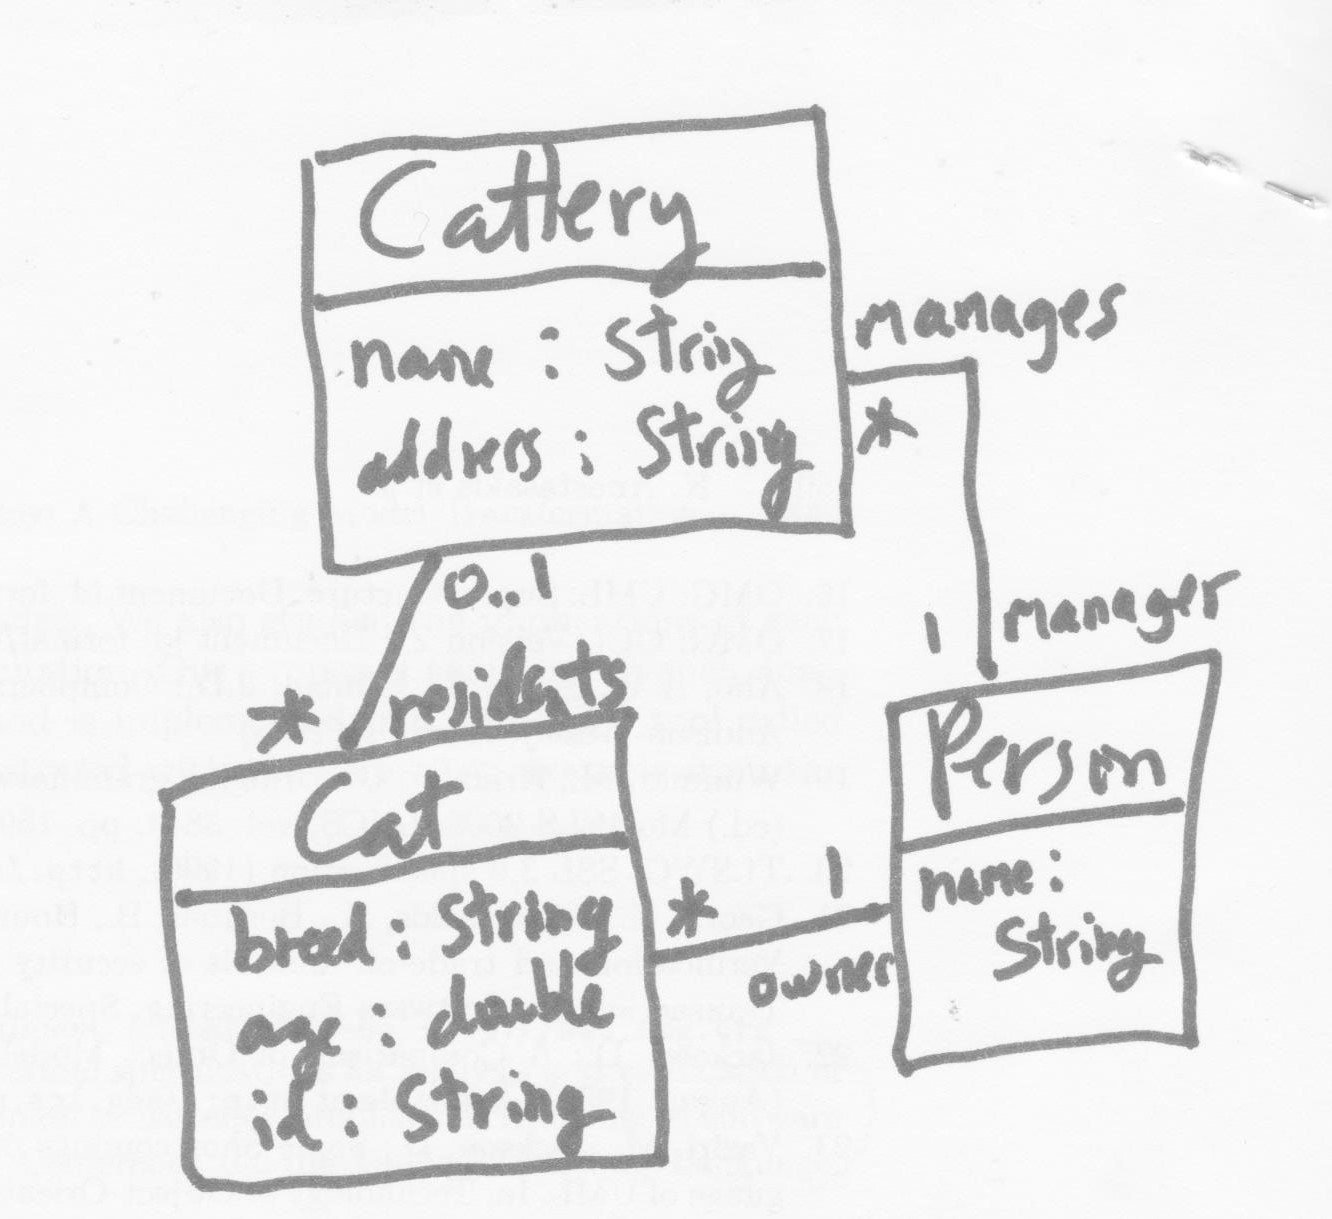 Cattery
name : String
address : String
manages
*
0..1
manager
1
* residents
Cat
breed : String
age : double
id : String
*
1
owner
Person
name :
String